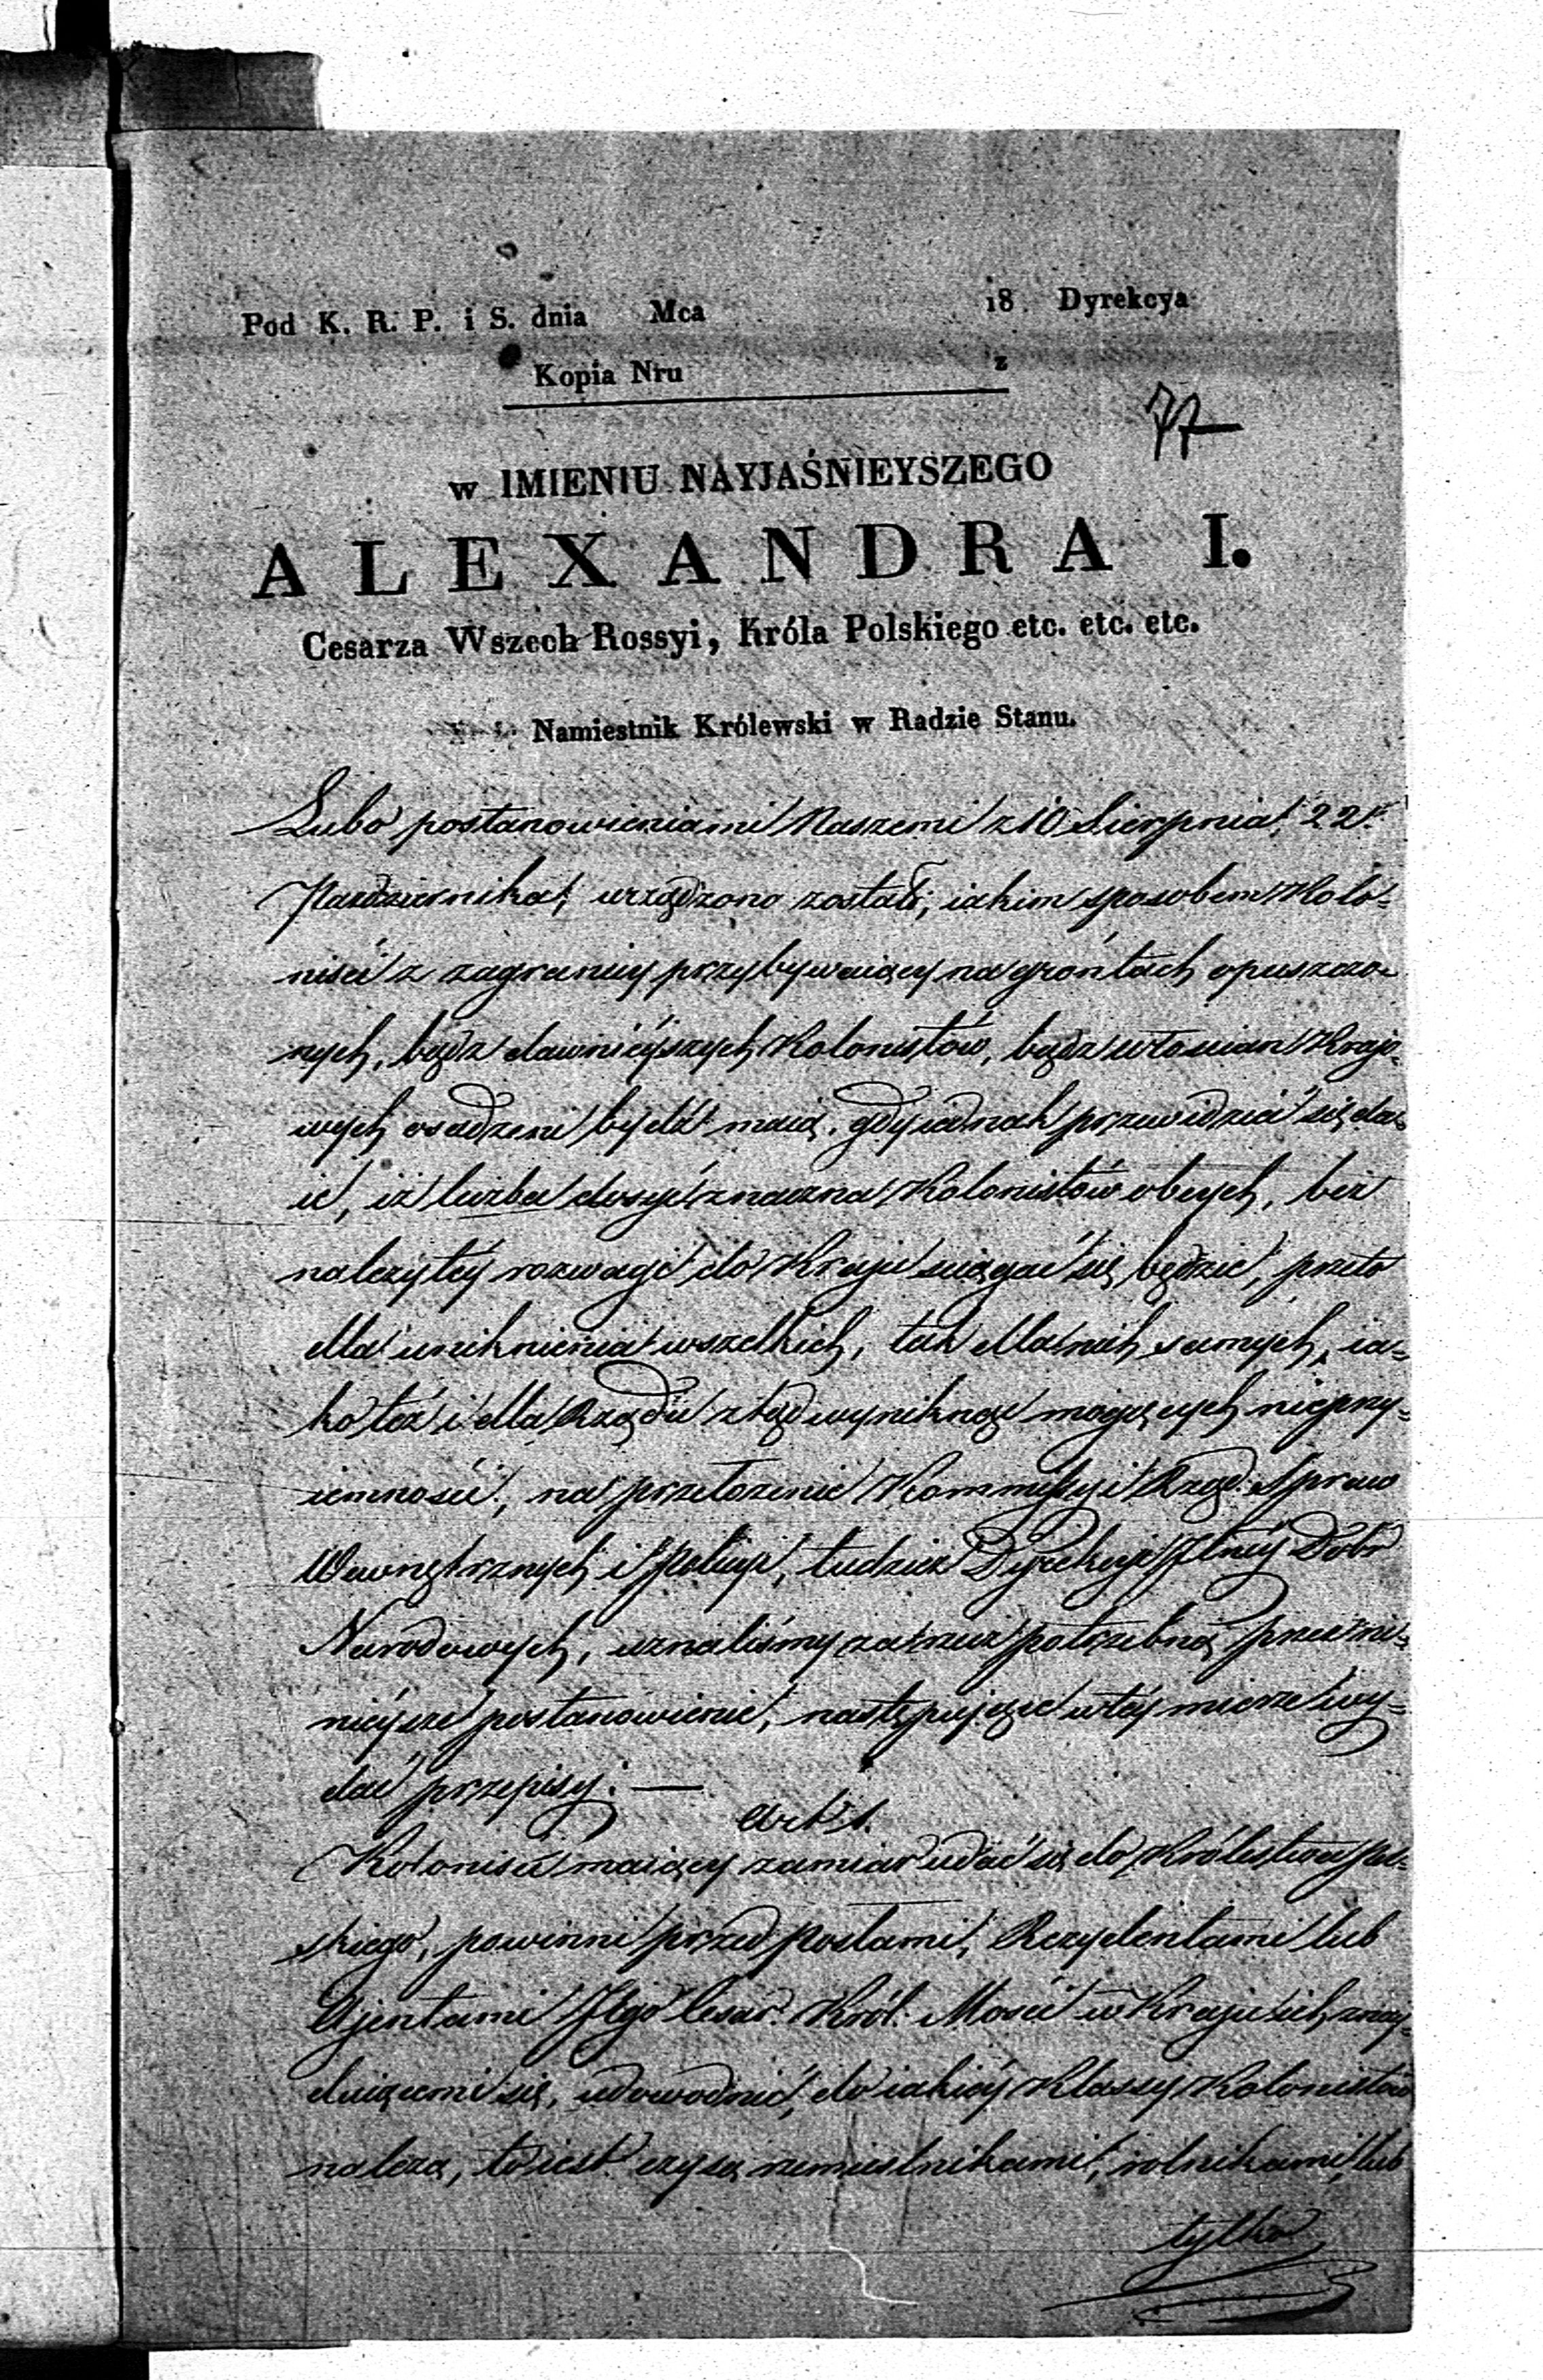 Pod K. R. P. i S. dnia Mca 18 Dyrekcya
Kopia Nru z
77
w IMIENIU NAYJAŚNIEYSZEGO
ALEXANDRA I.
Cesarza Wszech Rossyi, Króla Polskiego etc. etc. etc.
Namiestnik Królewski w Radzie Stanu.
Lubo postanowieniami Naszemi z 10 Sierpnia, 22.
Pazdziernika, urządzono zostało, iakim sposobem Kolo-
niści z zagranicy przybywaiący na gróntach opuszczo-
nych, bądz dawnieyszych Kolonistów, bądz włościan Krajo-
wych osadzeni bydź maią, gdy iednak przewidzieć się da-
ie, iż liczba dosyć znaczna Kolonistów obcych, bez
należytéy rozwagi do Kraju sciągać się będzie, przeto
dla uniknienia wszelkich, tak dla nich samych, ia-
ko téż i dla Rządu ztąd wyniknąć mogących nieprzy-
iemności, na przełożenie Kommissyi Rząd. Spraw
Wewnętrznych i Policyi, tudzież Dyrekcyi Dóbr
Narodowych, uznaliśmy za rzecz potrzebną, przez ni-
nieysze postanowienie, następujące w téy mierze wy-
dać przepisy: —
Art. 1.
Koloniści maiący zamiar udać się do Królestwa Pol-
skiego, powinni przed Posłami, Rezydentami lub
Ajentami Jego Cesar. Król. Mości w Kraju ich znay-
duiącemi się, udowodnić, do iakiéy Klassy Kolonistów
należą, to iest czy są rzemieslnikami, rolnikami, lub
tylko